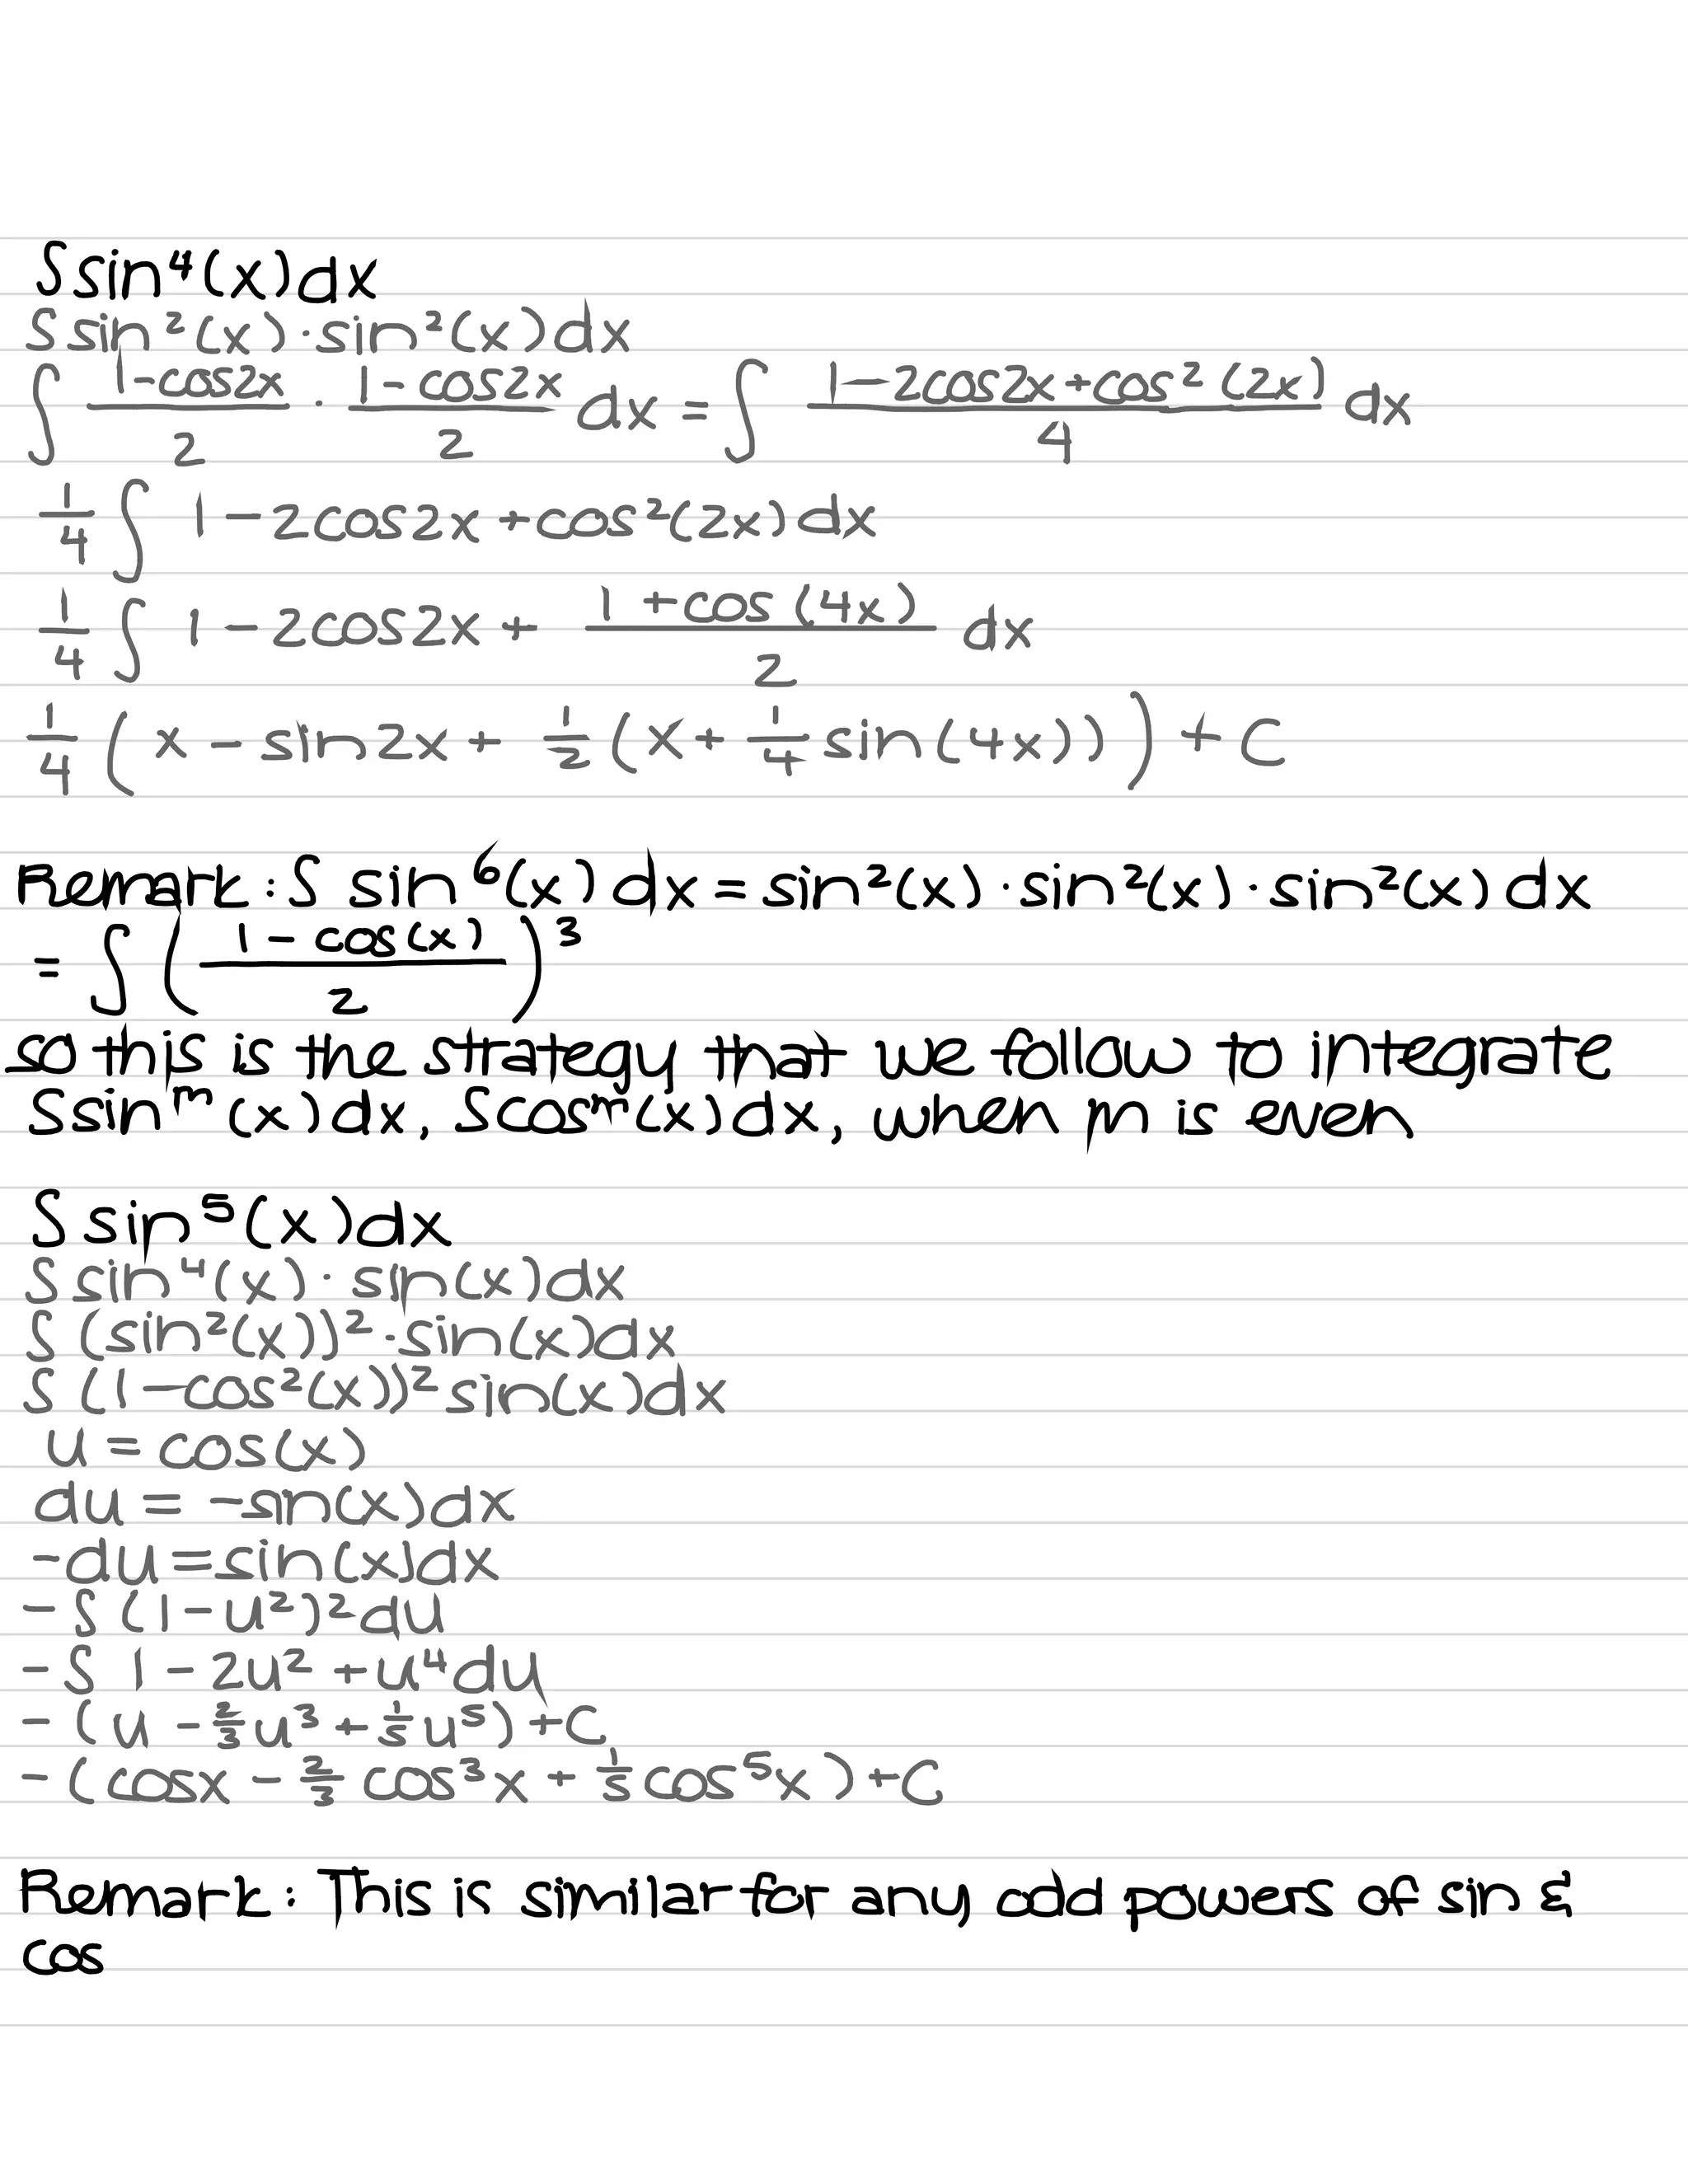 ∫sin⁴(x)dx
∫sin²(x)·sin²(x)dx
∫ (1-cos2x)/2 · (1-cos2x)/2 dx = ∫ (1-2cos2x+cos²(2x))/4 dx
1/4 ∫ 1-2cos2x+cos²(2x)dx
1/4 ∫ 1-2cos2x+ (1+cos(4x))/2 dx
1/4 (x-sin2x+ 1/2 (x+ 1/4 sin(4x))) + C
Remark: ∫ sin⁶(x)dx = sin²(x)·sin²(x)·sin²(x)dx
= ∫ ((1-cos(x))/2)³
so this is the strategy that we follow to integrate
∫sinᵐ(x)dx, ∫cosᵐ(x)dx, when m is even
∫sin⁵(x)dx
∫sin⁴(x)·sin(x)dx
∫(sin²(x))²·sin(x)dx
∫(1-cos²(x))²sin(x)dx
u = cos(x)
du = -sin(x)dx
-du=sin(x)dx
-∫(1-u²)²du
-∫1-2u²+u⁴du
-(u-2/3u³+1/5u⁵)+C
-(cosx-2/3cos³x+1/5cos⁵x)+C
Remark: This is similar for any odd powers of sin &
cos